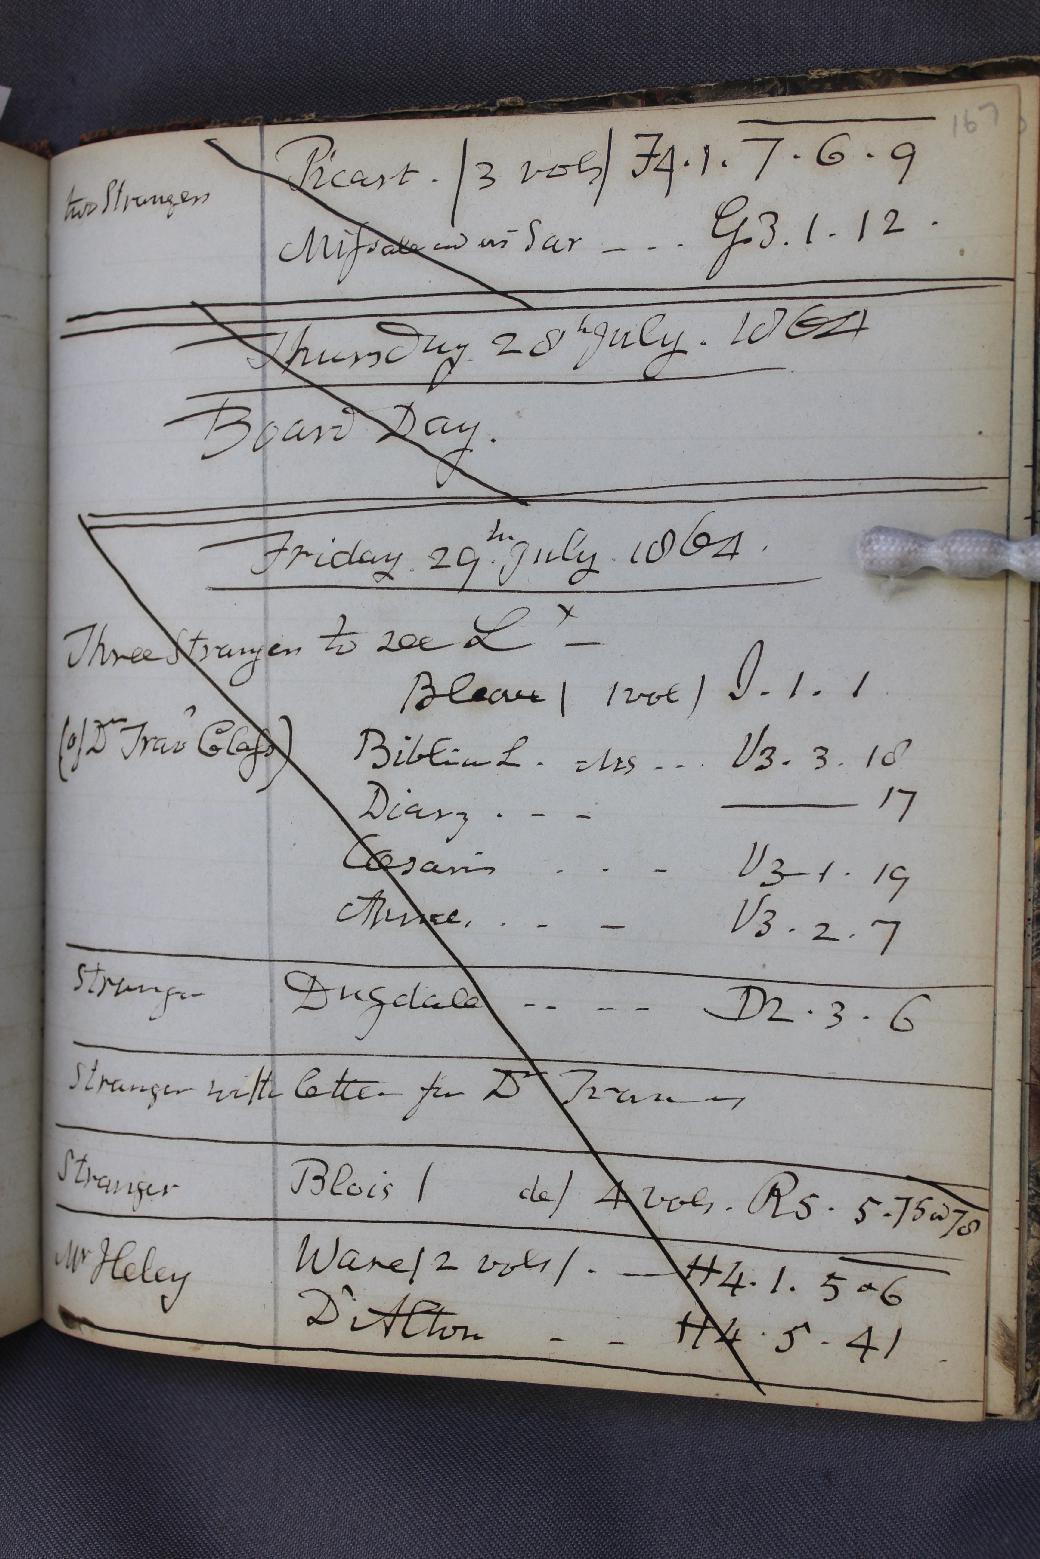 167
two Strangers Picart. / 3 vols / F4.1.7.6.9
Missale ad us Sar - - - G3.1.12.
Thursday 28th July. 1864
Board Day.
Friday 29th July 1864.
Three Strangers to see L x -
Bleau / 1 vol / I.1.1
(of Dr Class)
Biblia L. Ms ... V3.3.18
Diary . - - —— 17
Casaris . . - V3-1.19
V3.2.7
Stranger Dugdale -- -- D2.3.6
Stranger with letter for Dr Travers
Stranger Blois / de / 4 vols. R5.5.75 @ 78
Mr Heley Ware / 2 vols /. — H4.1.5 & 6
D'Alton - - H4.5.41